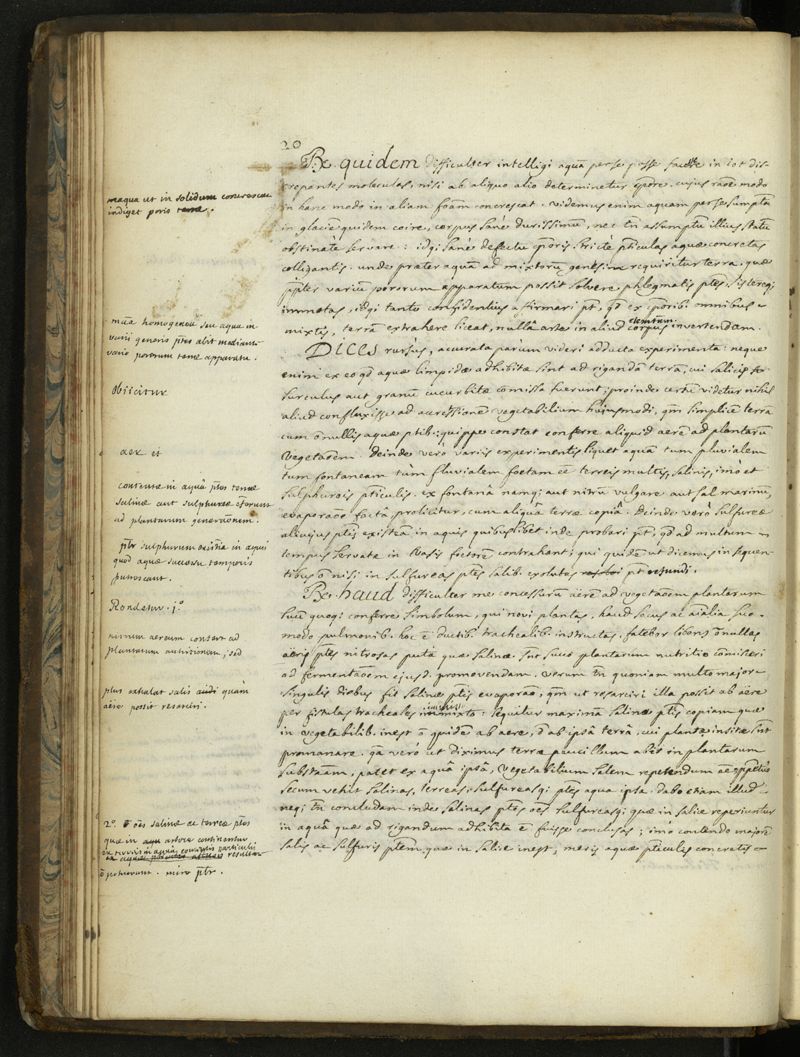 20
Rx quidem difficulter intelligi aquã per se posse in tot dis-
crepantes moleculas, nisi ab aliquo alio determinetur cujus modo
in hanc modo in aliam concrescat. videmus enim aquam per se sumptã
in glaciẽ quidem coire, corpus sanè durissimũ, nec tñ assumptũ illius statũ
obstinatè servare: idq; sanè defectu strictè pticulas aquae concretas
colligantis. unde praeter aquã ad mixtorũ genesim requiritur terra, quae
variũ pororum apparatum possit solvere, phlegmatis ptes sistereq;
immotas, idq; tanto confidentius affirmari pt, qd ex omnibus
mixtis, terrã extrahere liceat, nulla arte in aliud corpus invertendam.
elemtum
DICES rursus, accurata parùm videri adducta experimenta: neque
enim ex eo qd aquae limpidae adhibitae sint ad rigandã terrã, cui salicis
surculus aut granũ cucurbitae comissa fuerunt; proinde certũ videtur nihil
aliud confluxisse ad accessionẽ vegetabilium hujusmodi, qm simplicẽ terrã
cum õnullis aquae ptib: quippe constat conferre aliquid aerẽ ad plantarũ
vegetaõem. Deinde verò variis experimentis liquet aquã tum pluvialem
tum fontaneam tùm fluvialem foetam eẽ terreis multis, salinis, imò et
sulphureis pticulis. ex fontana namq; aut nitrũ vulgare aut sal marinũ,
evaporaõe factâ prolicitur, cum aliquâ terrae copiâ. Deinde verò sulfureae
alicujus ptis existẽã in aquis quibuslibet inde probari pt, qd ad multum
tempus servatae in vasis foetorẽ contrahant; qui quidẽ ut dicemus in sequen-
tibus õ nisi in sulfureas ptes salib. exolutas pt refundi.
Rx. haud difficulter me concessurũ aerẽ ad vegetaõem plantarum
suũ quoq; conferre simbolum, qui novi plantas, haud secus ac aialia suo
modo pulmonib. hoc ẽ ductib. trachealib. instructas. fatebor libens õnullas
aeris ptes nitrosas putà quae salinae snt succo plantarum nutritio cõmisceri
ad fermentaõem ejusd. promovendam. verum tñ quoniam multo major
singulis diebus fit salinae ptis evaporaõ, qm ut resarciri illa possit ab aere
per fistulas tracheales : sequitur maximã salinae ptis copiam quae
in vegetabilib. inest õ quidẽ ab aere, sed ab ipsâ terrâ, cui plantae insitae snt
promanare. qa verò ut diximus terrae pauxillum abit in plantarum
substaãm, patet ex aquâ ipsâ, vegetabilium salem repetendum
secum vehit salinas, terreas, sulfureasq; ptes aqua ipsa. dabo etiam illud
neq; tñ concludam inde salinas ptes oẽs sulfureasq; quae in salice reperiuntur
in aquâ quae ad rigandum adhibita ẽ fuisse conclusas; imo contendo majorẽ
salis ac sulfuris ptem, quae in salice inest, meris aquae pticulis concretis
aqua ut in solidum concrescat
indiget poris terrae.
mãa homogeneu seu aqua in
varii generis ptes abit mediante
vario pororum terrae apparatu.
obiicitur
aer et
contentae in aquâ ptes terreae
salinae aut sulphureae
ad plantarum generaõnem.
ptr sulphurum existẽa in aquis
quod aquae successu temporis
putrescant.
Rondetur. 1º
nitrum aereum conferre ad
plantarum nutritionem, sed
plus exhalat salis quàm
aëre possit resarciri.
2º. oẽs salinae ac terreae ptes
quae in arbore continentur
resultare
õ potuerunt. miro ptr.